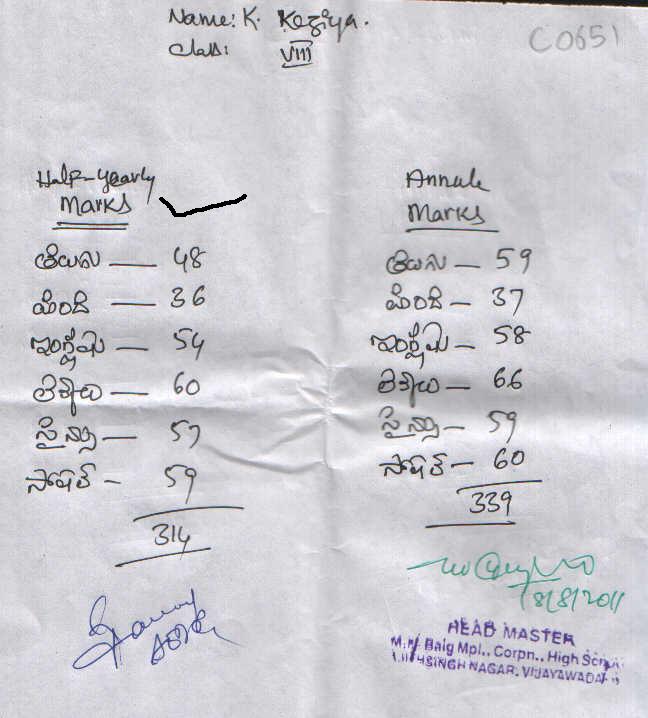 Name: K. Keziya.
Class: VIII
C0651
Half-yearly
Marks
తెలుగు — 48
హిందీ — 36
ఇంగ్లీషు — 54
లెక్కలు — 60
సైన్సు — 57
సోషల్ - 59
314
Annule
Marks
తెలుగు — 59
హిందీ — 37
ఇంగ్లీషు — 58
లెక్కలు — 66
సైన్సు — 59
సోషల్ - 60
339
18/8/2011
HEAD MASTER
Baig Mpl., Corpn., High School
SINGH NAGAR, VIJAYAWADA